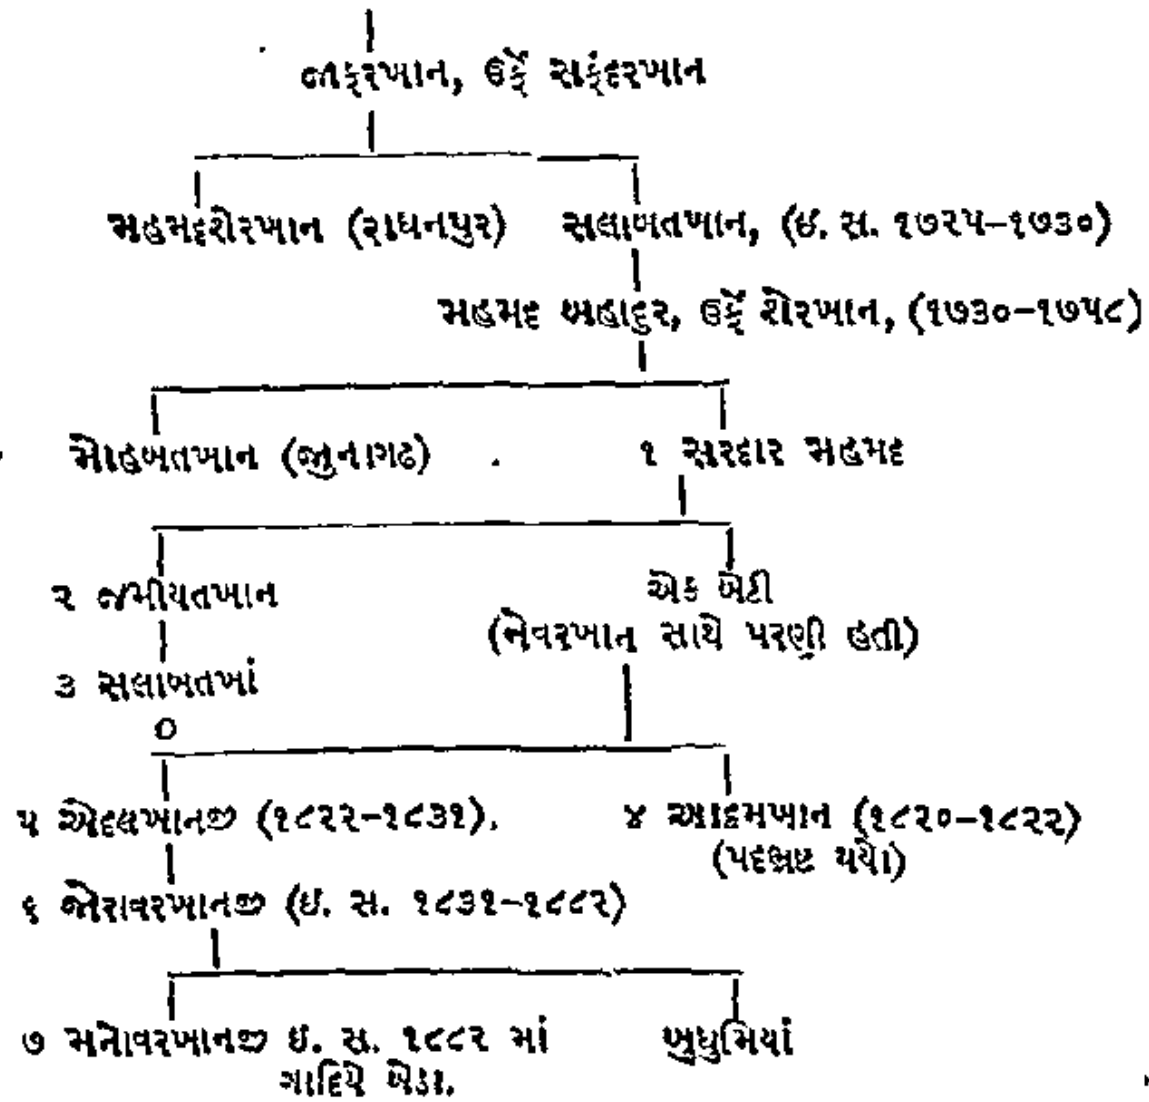 જાફરખાન, ઉર્ફે સફંદરખાન
મહમદશેરખાન (રાધનપુર) સલાબતખાન, (ઇ. સ. ૧૭૨૫–૧૭૩૦)
મહમદ બહાદુર, ઉર્ફે શેરખાન, (૧૭૩૦–૧૭૫૮)
મોહબતખાન (જુનાગઢ) ૧ સરદાર મહમદ
૨ જમીયતખાન એક બેટી
(નેવરખાન સાથે પરણી હતી)
૩ સલાબતખાં
૫ એદલખાનજી (૧૮૨૨–૧૮૩૧). ૪ આદમખાન (૧૮૨૦–૧૮૨૨)
(પદભ્રષ્ટ થયો)
૬ જોરાવરખાનજી (ઇ. સ. ૧૮૩૧–૧૮૮૨)
૭ મનોવરખાનજી ઇ. સ. ૧૮૮૨ માં ખુધુમિયાં
ગાદિયે બેઠા.